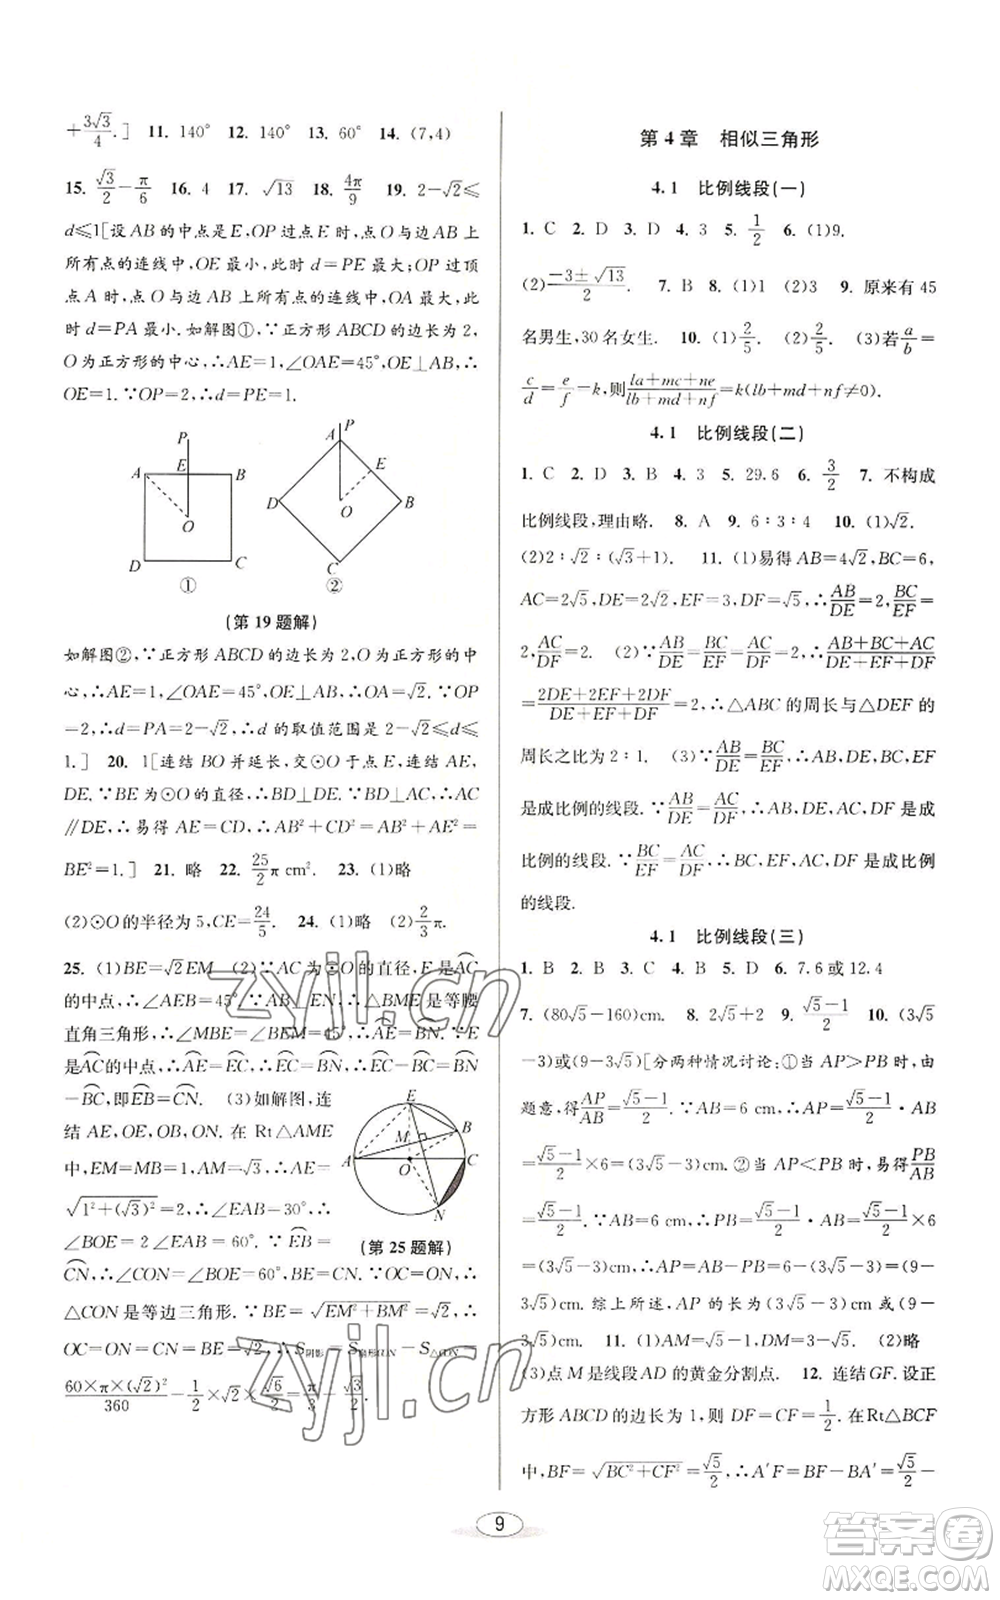 +3√3/4.] 11. 140° 12. 140° 13. 60° 14. (7,4)
15. √3/2−π/6 16. 4 17. √13 18. 4π/9 19. 2−√2≤
d≤1[设AB的中点是E,OP过点E时,点O与边AB上
所有点的连线中,OE最小,此时d=PE最大;OP过顶
点A时,点O与边AB上所有点的连线中,OA最大,此
时d=PA最小.如解图①,∵正方形ABCD的边长为2,
O为正方形的中心,∴AE=1,∠OAE=45°,OE⊥AB,∴
OE=1.∵OP=2,∴d=PE=1.
P
A E B
O
D C
①
P
A
E
D O B
C
②
(第19题解)
如解图②,∵正方形ABCD的边长为2,O为正方形的中
心,∴AE=1,∠OAE=45°,OE⊥AB,∴OA=√2.∵OP
=2,∴d=PA=2−√2,∴d的取值范围是2−√2≤d≤
1.] 20. 1[连结BO并延长,交⊙O于点E,连结AE,
DE.∵BE为⊙O的直径,∴BD⊥DE.∵BD⊥AC,∴AC
∥DE,∴易得AE=CD,∴AB²+CD²=AB²+AE²=
BE²=1.] 21. 略 22. 25/2π 23. (1)略
(2)⊙O的半径为5,CE=24/5. 24. (1)略 (2)2/3π.
25. (1)BE=√2EM (2)∵AC为⊙O的直径,E是AC
的中点,∴∠AEB=45°.∵AB⊥EN,∴△BME是等腰
直角三角形,∴∠MBE=∠BEM=45°,∴AE=BN.∵E
是AC的中点,∴AE=EC,∴EC=BN,∴EC−BC=BN
−BC,即EB=CN. (3)如解图,连
结AE,OE,OB,ON.在Rt△AME
中,EM=MB=1,AM=√3,∴AE=
√(1²+(√3)²)=2,∴∠EAB=30°,∴
∠BOE=2∠EAB=60°.∵EB=
CN,∴∠CON=∠BOE=60°.∵OC=ON,∴
△CON是等边三角形.∵BE=√(EM²+BM²)=√2,∴
OC=ON=BE=√2,∴S阴影=S扇形CON−S△CON=
60×π×(√2)²/360−1/2×√2×√6/2=π/3−√3/2.
E
M B
A O C
N
(第25题解)
第4章 相似三角形
4.1 比例线段(一)
1. C 2. D 3. D 4. 3 5. 1/2 6. (1)9.
(2)−3±√13/2. 7. B 8. (1)1 (2)3 9. 原来有45
名男生,30名女生. 10. (1)2/5 (2)2/5 (3)若a/b=
c/d=e/f=k,则la+mc+ne/lb+md+nf=k(lb+md+nf≠0).
4.1 比例线段(二)
1. C 2. D 3. B 4. 3 5. 29.6 6. 3/2 7. 不构成
比例线段,理由略. 8. A 9. 6∶3∶4 10. (1)√2.
(2)2∶√2=(√3+1)∶. 11. (1)易得AB=4√2,BC=6,
AC=2√5,DE=2√2,EF=3,DF=√5,∴AB/DE=2,BC/EF=
2,AC/DF=2. (2)∵AB/DE=BC/EF=AC/DF=2,∴AB+BC+AC/DE+EF+DF
=2DE+2EF+2DF/DE+EF+DF=2,∴△ABC的周长与△DEF的
周长之比为2∶1. (3)∵AB/DE=BC/EF,∴AB,DE,BC,EF
是成比例的线段.∵AB/DE=AC/DF,∴AB,DE,AC,DF是成
比例的线段.∵BC/EF=AC/DF,∴BC,EF,AC,DF是成比例
的线段.
4.1 比例线段(三)
1. B 2. A 3. C 4. B 5. D 6. 7.6或12.4
7. (80√5−160)cm. 8. 2√5+2 9. √5−1/2 10. (3√5
−3)或(9−3√5)[分两种情况讨论:①当AP>PB时,由
题意,得AP/AB=√5−1/2.∵AB=6 cm,∴AP=√5−1/2·AB
=√5−1/2×6=(3√5−3)cm.②当AP<PB时,则PB/AB
=√5−1/2.∵AB=6 cm,∴PB=√5−1/2·AB=√5−1/2×6
=(3√5−3)cm,∴AP=AB−PB=6−(3√5−3)=(9−
3√5)cm.综上所述,AP的长为(3√5−3)cm或(9−
3√5)cm. 11. (1)AM=√5−1,DM=3−√5. (2)略
(3)点M是线段AD的黄金分割点. 12. 连结GF.设正
方形ABCD的边长为1,则DF=CF=1/2.在Rt△BCF
中,BF=√(BC²+CF²)=√5/2,∴A′F=BF−BA′=√5/2−
9
zyjl.cn
zyjl.cn
答案圈
MXQE.COM